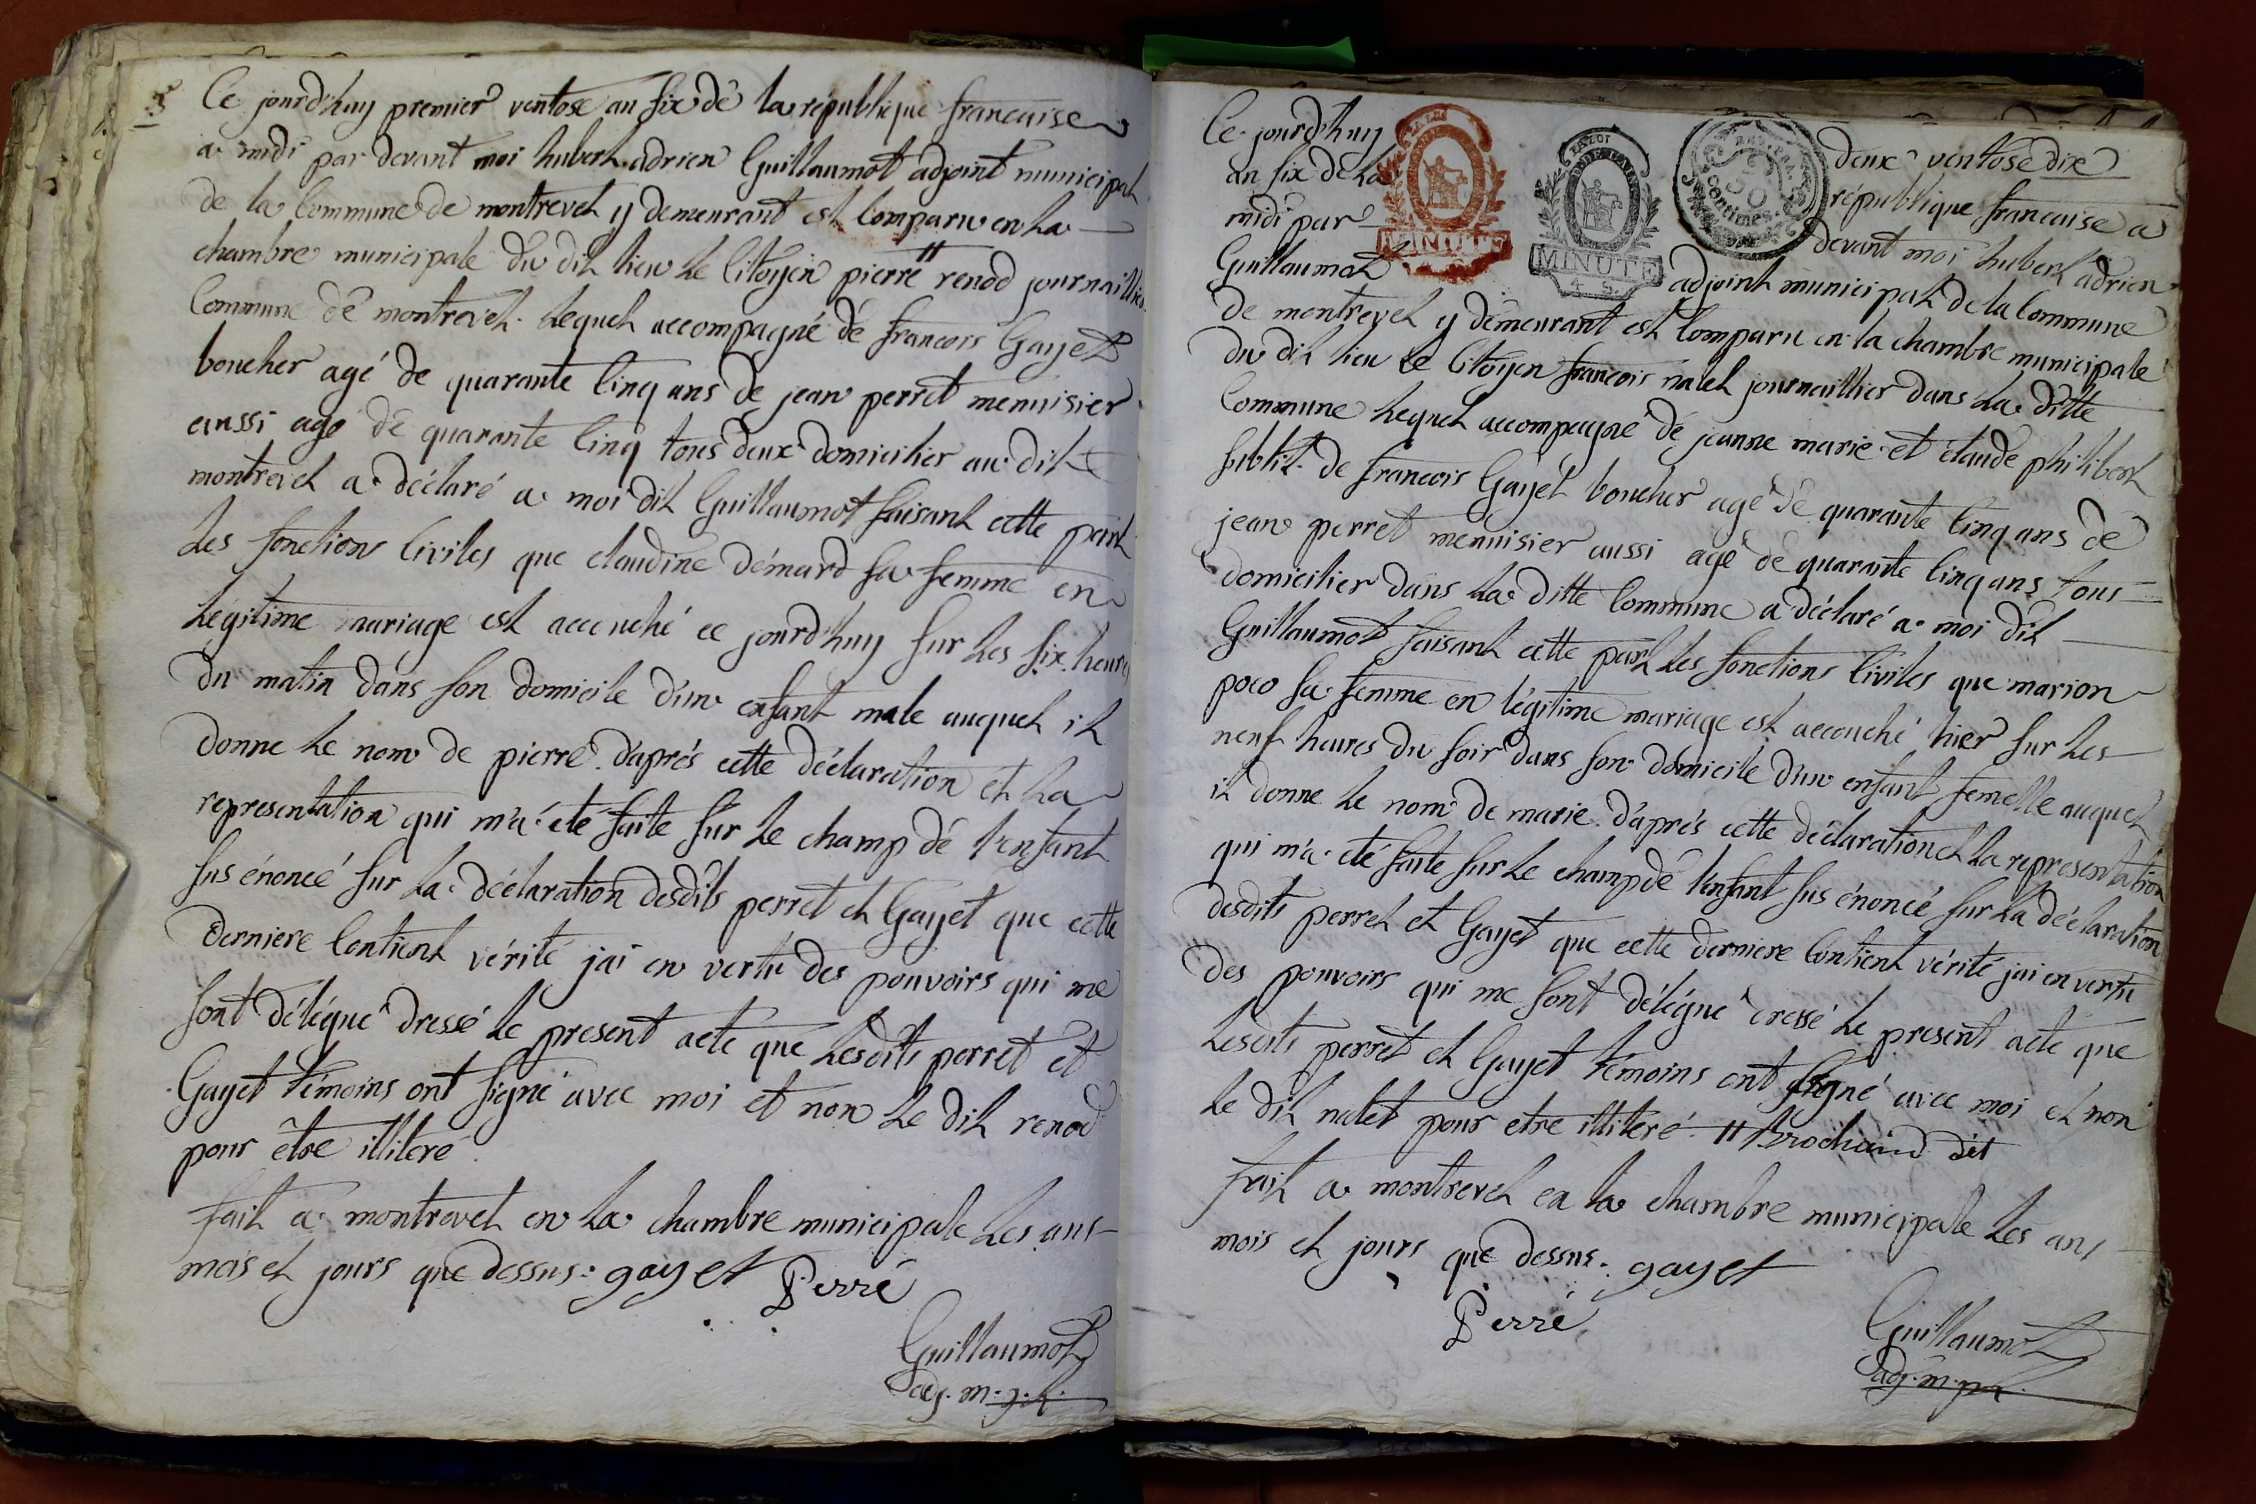 Ce jourd'huy premier ventose an six de la république francaise
a midi par devant moi hubert adrien Guillaumot adjoint municipal
de la Commune de montrevel y demeurant est Comparu en la
chambre municipale du dit lieu le Citoyen pierre " renod journaillier
Commune de montrevel. lequel accompagné de francois Gayet
boucher agé de quarante Cinq ans de jean perret menuisier
aussi agé de quarante Cinq tous deux domicilier au dit
montrevel a déclaré a moi dit Guillaumot faisant cette part
les fonctions Civiles que claudine démard sa femme en
légitime mariage est accouché ce jourd'huy sur les six heures
du matin dans son domicile d'un enfant male auquel il
donne le nom de pierre. d'après cette déclaration et la
representation qui m'a été faite sur le champ de l'enfant
sus énoncé sur la déclaration desdits perret et Gayet que cette
derniere Contient vérité j'ai en vertu des pouvoirs qui me
sont délégué dressé le present acte que lesdits perret et
Gayet témoins ont signé avec moi et non le dit renod
pour être illiteré
fait a montrevel en la chambre municipale les ans
mois et jours que dessus: gayet Perré
Guillaumot
adj. m.
Ce jourd'huy deux ventose dix
an six de la république francaise a
midi par devant moi hubert adrien
Guillaumot adjoint municipal de la Commune
de montrevel y demeurant est Comparu en la chambre municipale
du dit lieu le Citoyen francois nalet journaillier dans la ditte
Commune lequel accompagné de jeanne marie et claude philibert
subtil. de francois Gayet boucher agé de quarante Cinq ans de
jean perret menuisier aussi agé de quarante Cinq ans tous
domicilier dans la ditte Commune a déclaré a moi dit
Guillaumot faisant cette part les fonctions Civiles que marion
poco sa femme en légitime mariage est accouché hier sur les
neuf heures du soir dans son domicile d'un enfant femelle auquel
il donne le nom de marie. d'après cette déclaration et la representation
qui m'a été faite sur le champ de l'enfant sus énoncé sur la déclaration
desdits perret et Gayet que cette derniere Contient vérité j'ai en vertu
des pouvoirs qui me sont délégué dressé le present acte que
lesdits perret et Gayet témoins ont signé avec moi et non
le dit nalet pour etre illiteré. " dit
fait a montrevel en la chambre municipale les ans
mois et jours que dessus: gayet
Perré
Guillaumot
adj. m. pal.
LA LOI
MINUTE
LA LOI
MINUTE
4. S.
50
centimes.